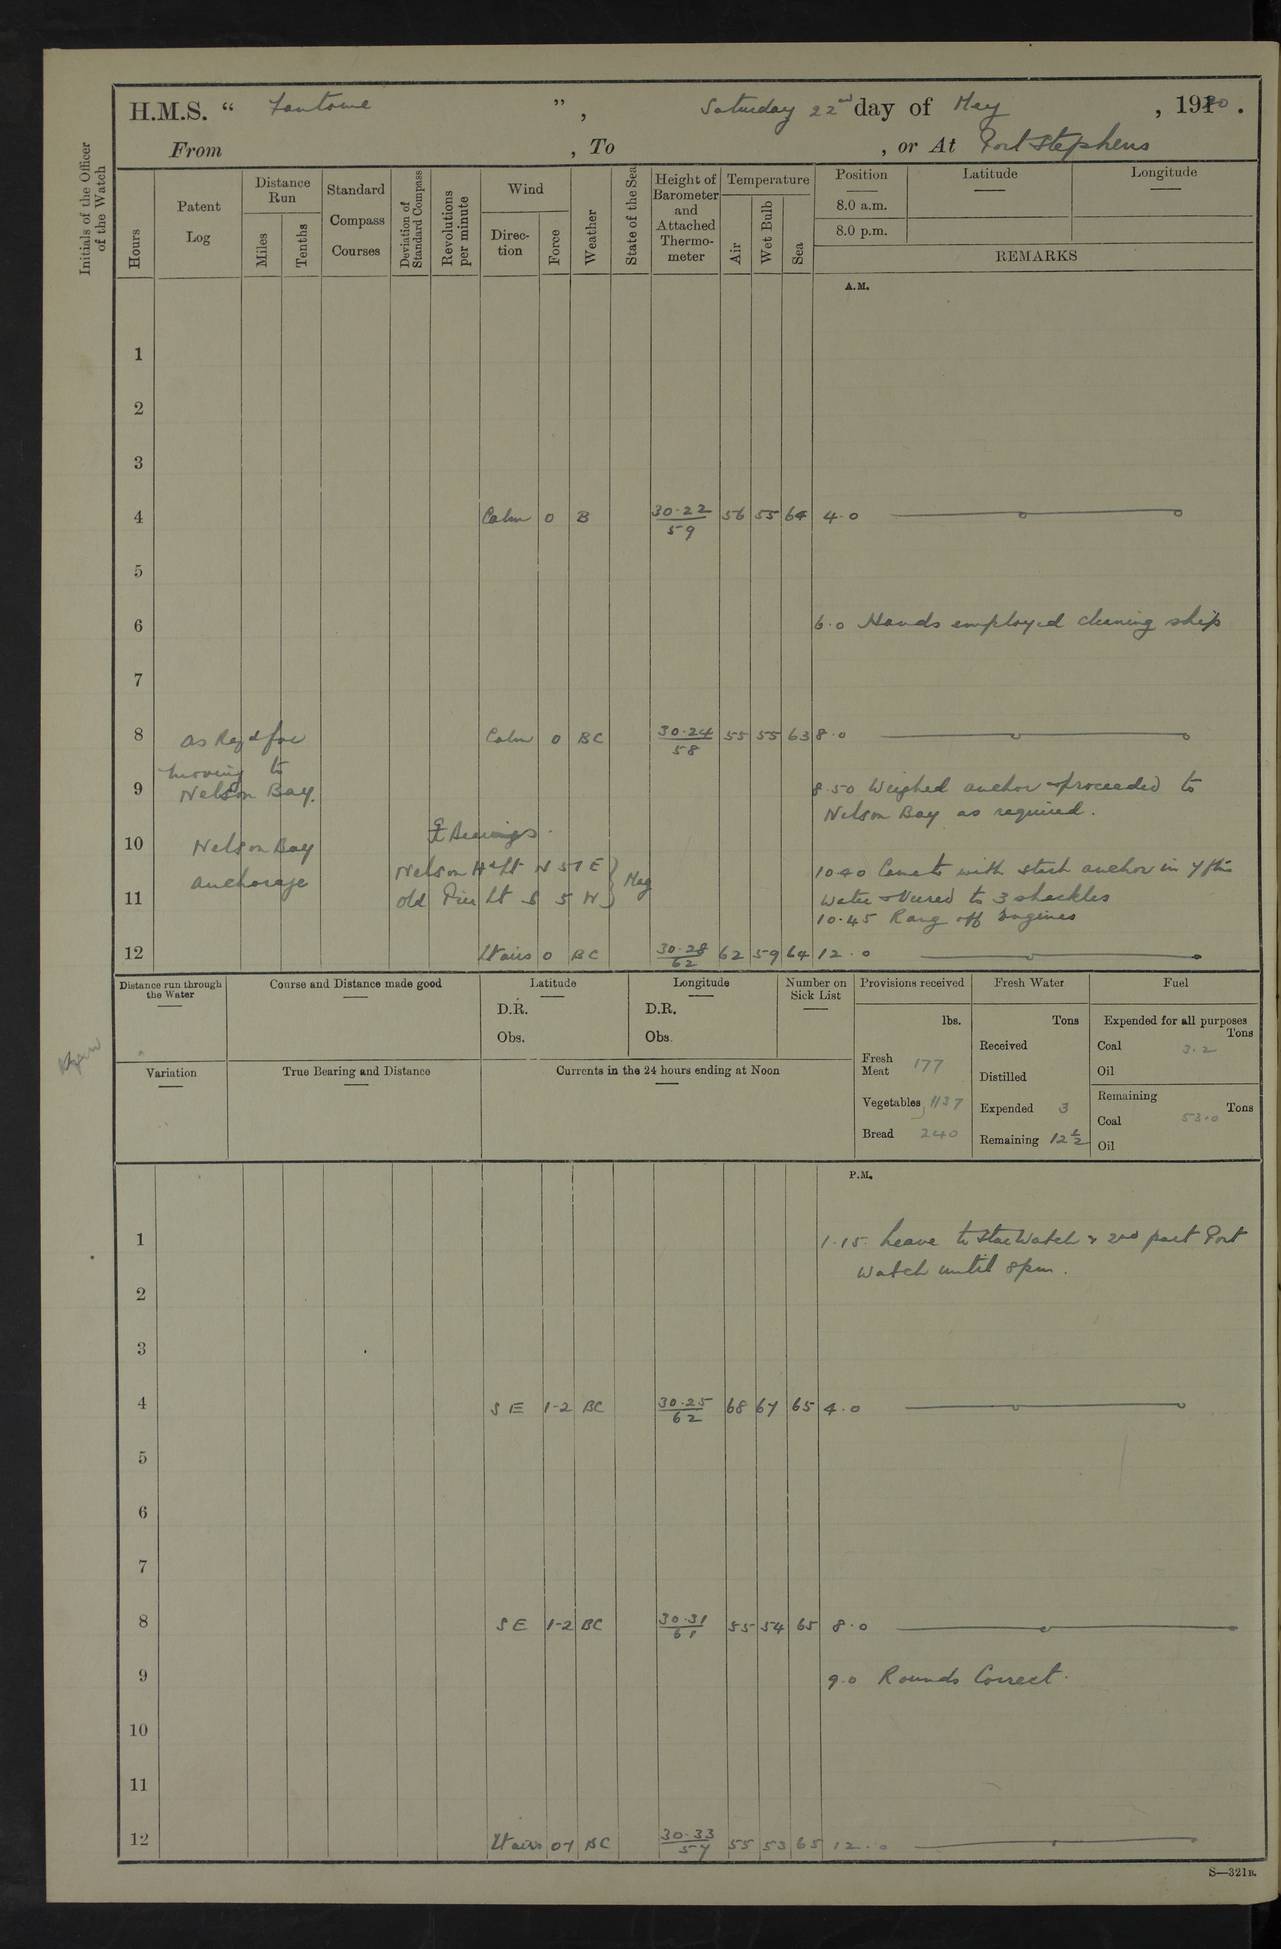 H.M.S. “ Fantome ” , Saturday 22nd day of May , 1920 .
From , To , or At Port Stephens
Initials of the Officer of the Watch
Hours
Patent Log
Distance Run
Miles
Tenths
Standard Compass Courses
Deviation of Standard Compass
Revolutions per minute
Wind
Direc-tion
Force
Weather
State of the Sea
Height of Barometer and Attached Thermo-meter
Temperature
Air
Wet Bulb
Sea
Position
8.0 a.m.
8.0 p.m.
Latitude
Longitude
REMARKS
A.M.
1
2
3
4 Calm 0 B 30.22 56 55 64 4.0
59
5
6 6.0 Hands employed cleaning ship
7
8 as Reqd for Calm 0 BC 30.24 55 55 63 8.0
58
moving to
9 Nelson Bay. 8.50 Weighed anchor & proceeded to
Nelson Bay as required.
10 Nelson Bay Bearings.
anchorage Nelson Hd Lt N 51 E 10.40 Came to with starb anchor in 7 fm
11 old Pier Lt S 5 W Mag water & veered to 3 shackles
10.45 Rang off Engines
12 Lt airs 0 BC 30.28 62 59 64 12.0
62
Distance run through the Water
Course and Distance made good
Latitude
D.R.
Obs.
Longitude
D.R.
Obs.
Number on Sick List
Provisions received
lbs.
Fresh Meat 177
Vegetables 1137
Bread 240
Fresh Water
Tons
Received
Distilled
Expended 3
Remaining 12 1/2
Fuel
Expended for all purposes
Tons
Coal 3.2
Oil
Remaining
Tons
Coal 53.0
Oil
Variation
True Bearing and Distance
Currents in the 24 hours ending at Noon
P.M.
1 1.15 Leave to Star Watch & 2nd part Port
Watch until 8pm.
2
3
4 SE 1-2 BC 30.25 68 67 65 4.0
62
5
6
7
8 SE 1-2 BC 30.31 55 54 65 8.0
61
9 9.0 Rounds Correct.
10
11
12 Lt airs 0-1 BC 30.33 55 53 65 12.0
57
S—321B.